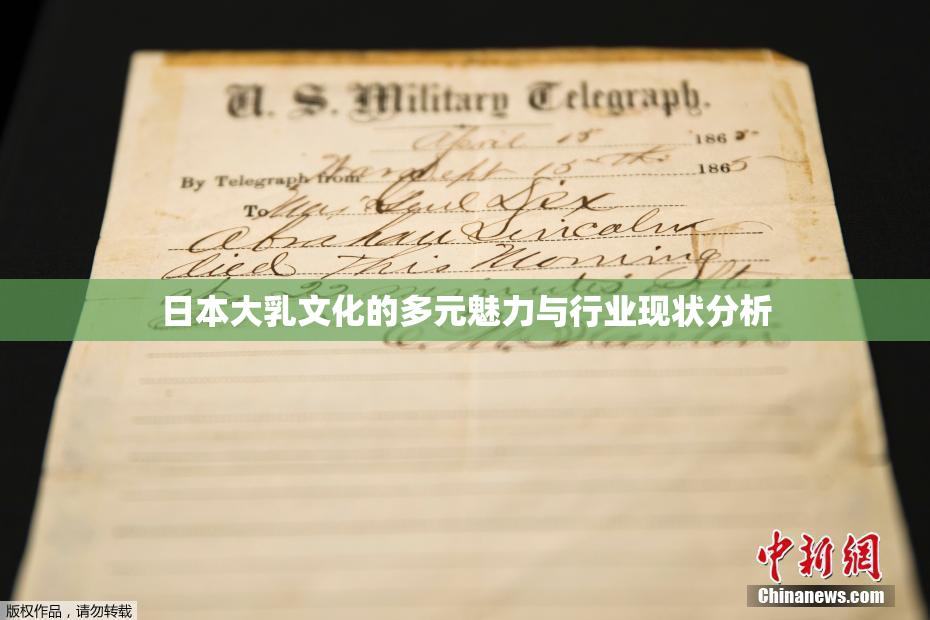 U. S. Military Telegraph.
April 15 1865
By Telegraph from War Dept 15th 1865
To Maj Genl Dix
Abraham Lincoln
died This Morning
at 22 minutes after
日本大乳文化的多元魅力与行业现状分析
E. M. Stanton
中新网
Chinanews.com
版权作品，请勿转载